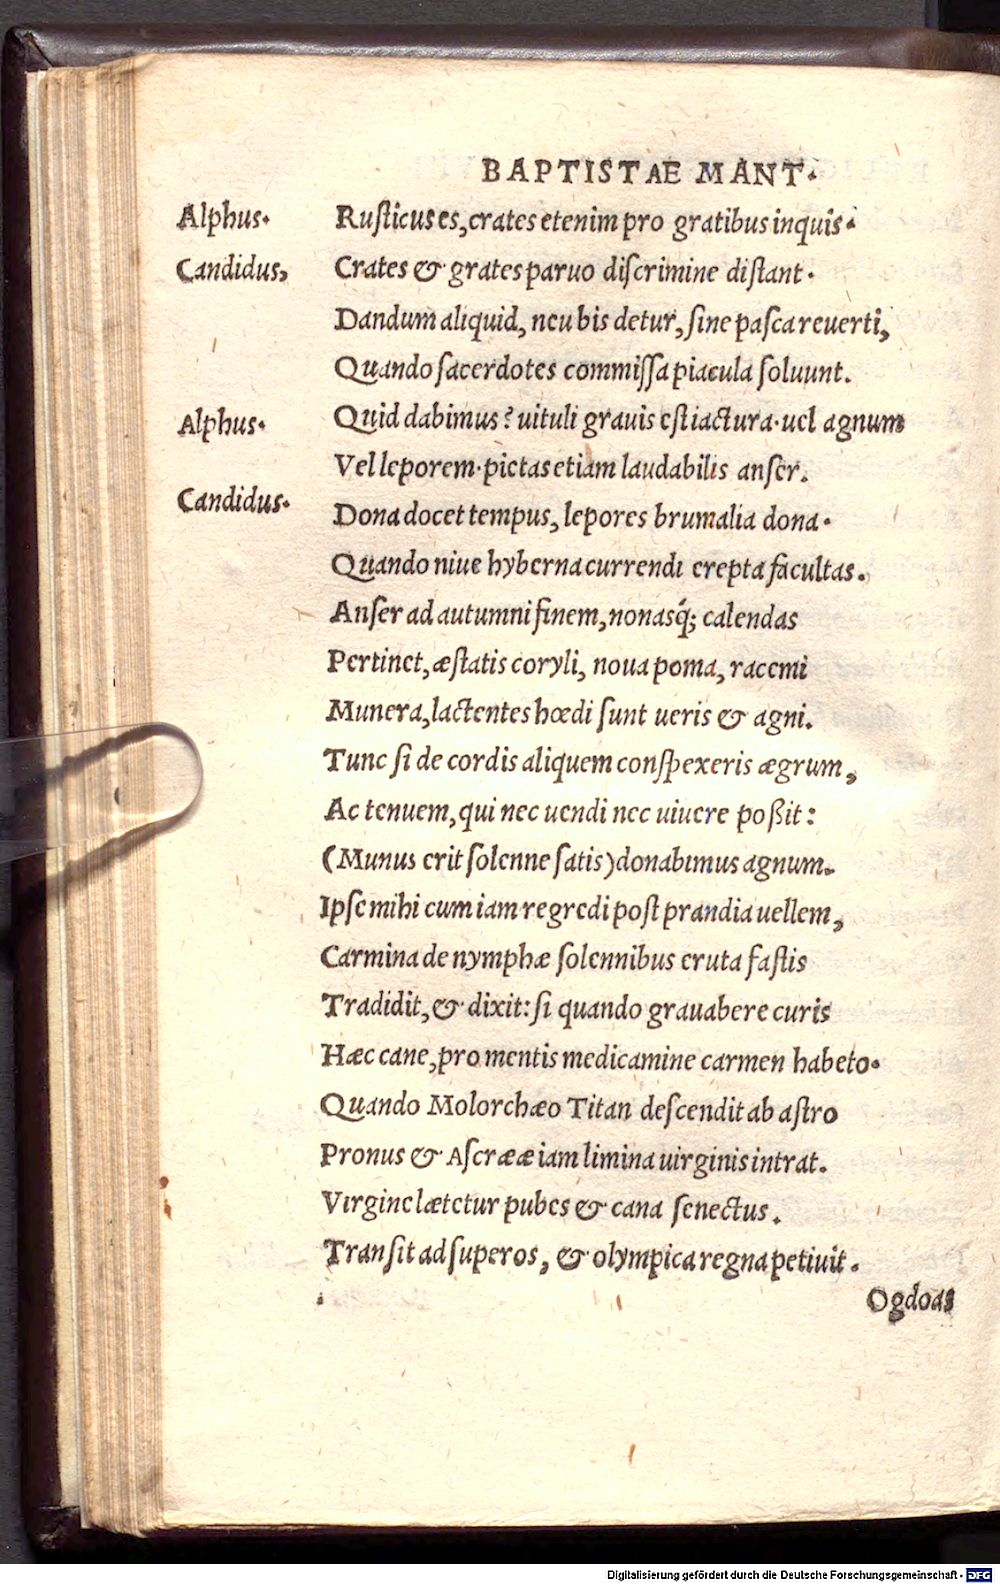 BAPTISTAE MANT.
Alphus. Rusticus es, crates etenim pro gratibus inquis.
Candidus, Crates & grates paruo discrimine distant.
Dandum aliquid, neu bis detur, sine pasca reuerti,
Quando sacerdotes commissa piacula soluunt.
Alphus. Quid dabimus? uituli grauis est iactura. uel agnum
Vel leporem. pictas etiam laudabilis anser.
Candidus. Dona docet tempus, lepores brumalia dona.
Quando niue hyberna currendi erepta facultas.
Anser ad autumni finem, nonasq́; calendas
Pertinet, æstatis coryli, noua poma, racemi
Munera, lactentes hœdi sunt ueris & agni.
Tunc si de cordis aliquem conspexeris ægrum,
Ac tenuem, qui nec uendi nec uiuere poßit:
(Munus erit solenne satis) donabimus agnum.
Ipse mihi cum iam regredi post prandia uellem,
Carmina de nymphæ solennibus eruta fastis
Tradidit, & dixit: si quando grauabere curis
Hæc cane, pro mentis medicamine carmen habeto.
Quando Molorchæo Titan descendit ab astro
Pronus & Ascrææ iam limina uirginis intrat.
Virgine lætetur pubes & cana senectus.
Transit ad superos, & olympica regna petiuit.
Ogdoas
Digitalisierung gefördert durch die Deutsche Forschungsgemeinschaft - DFG